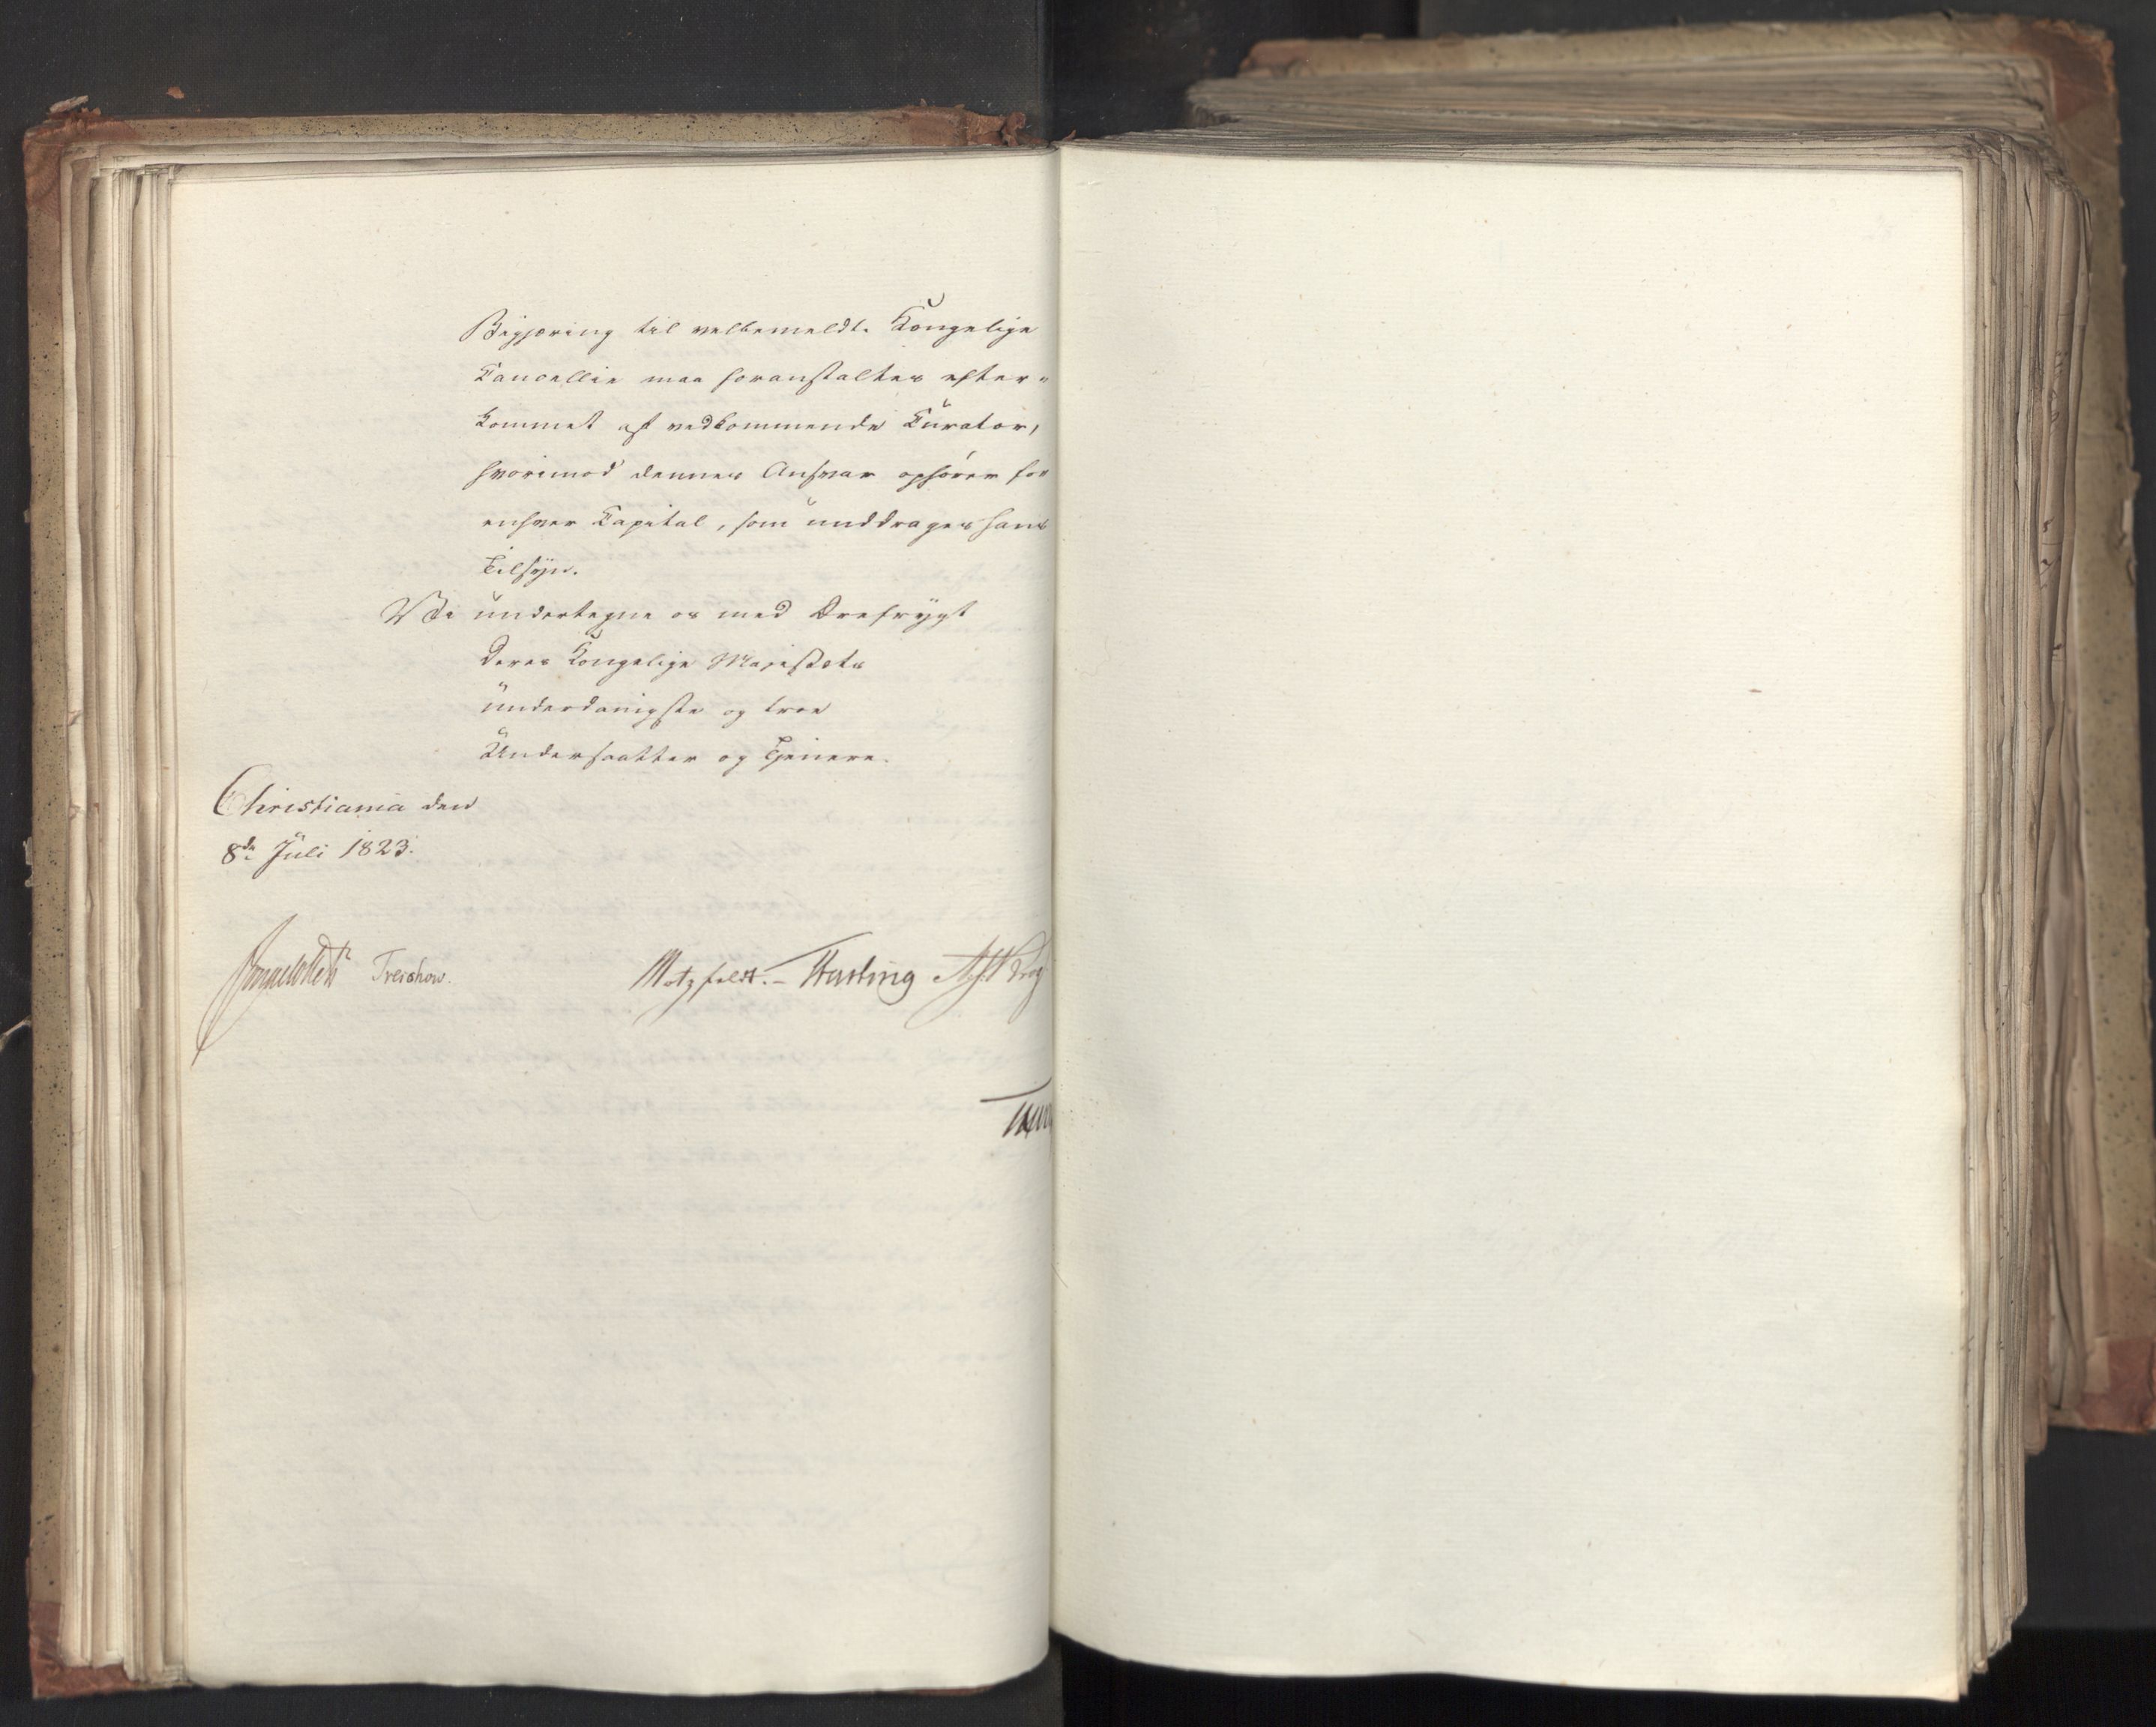 Begjæring til velbemeldte Kongelige
Cancellie maa foranstaltes efter-
kommet af vedkommende Curator,
hvorimod dennes Ansvar ophører for
enhver Capital, som unddrages hans
Tilsyn.
Vi undertegne os med Ærefrygt
Deres Kongelige Majestæts
underdanigste og troe
Undersaatter og Tjenere.
Christiania den
8de Juli 1823.
Treschow. Motzfeldt. - Hasting